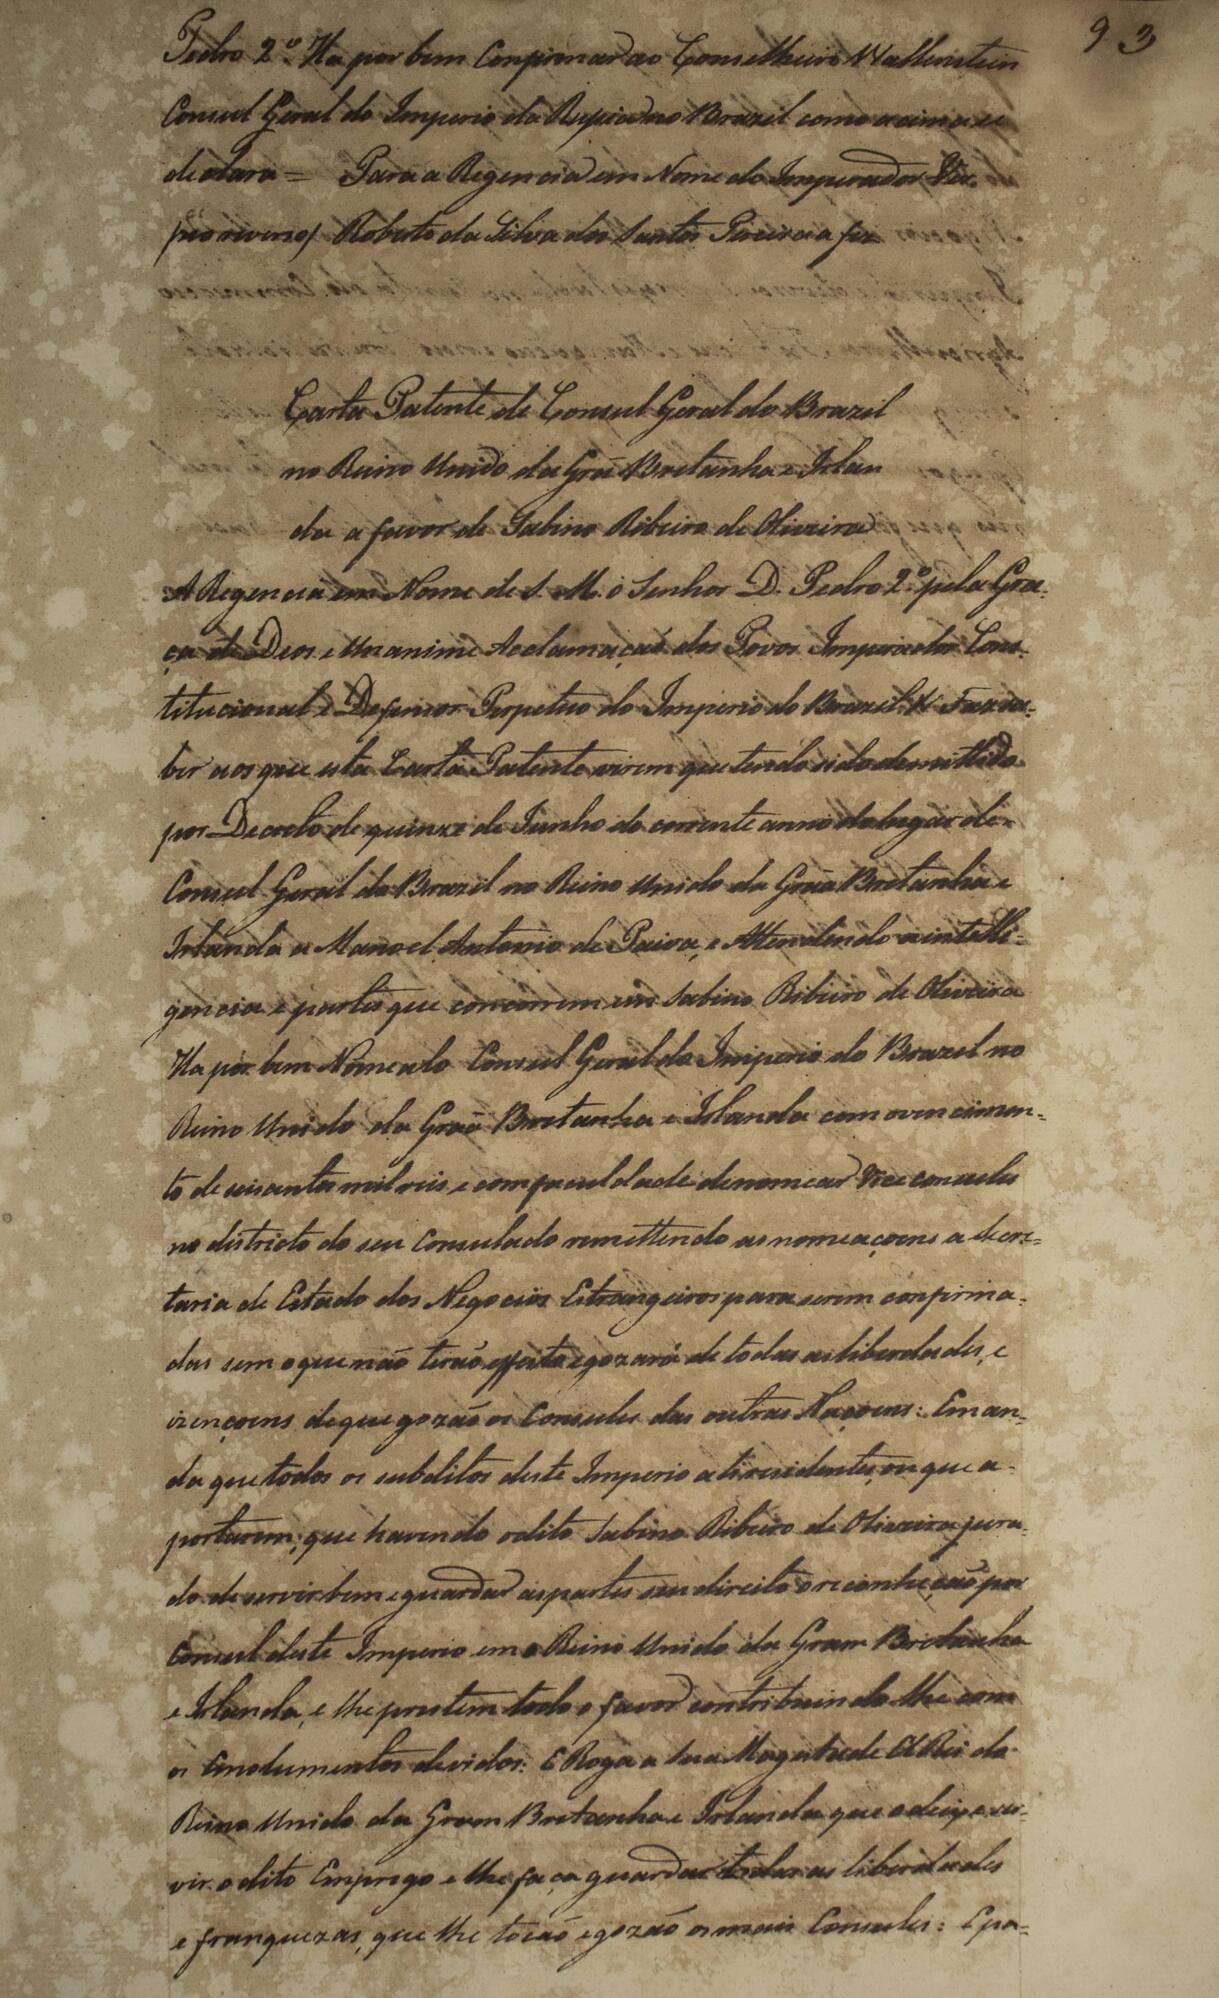 93
Pedro 2.º Ha por bem Confirmar ao Conselheiro Wallenstein
Consul Geral do Imperio da Russia no Brazil como acima se
declara = Para a Regencia em Nome do Imperador Ver
/no verso/ Roberto da Silva dos Santos Pereira a fez
Carta Patente de Consul Geral do Brazil
no Reino Unido da Grã Bretanha e Irlan
da a favor de Sabino Ribeiro de Oliveira
A Regencia em Nome de S. M. o Senhor D. Pedro 2.º pela Gra-
ça de Deos e Unanime Acclamação dos Povos Imperador Cons-
titucional e Defensor Perpetuo do Imperio do Brazil &ª Faz sa-
ber aos que esta Carta Patente virem que tendo sido demittido
por Decreto de quinze de Junho do corrente anno do lugar de
Consul Geral do Brazil no Reino Unido da Graã Bretanha e
Irlanda a Manoel Antonio de Paiva, e Attendendo a intelli-
gencia e partes que concorrem em Sabino Ribeiro de Oliveira
Ha por bem Nomealo Consul Geral do Imperio do Brazil no
Reino Unido da Graã Bretanha e Irlanda com o vencimen-
to de seiscentos mil reis e com faculdade de nomear Vice consules
no districto do seu Consulado remettendo as nomeaçoens a Secre-
taria de Estado dos Negocios Estrangeiros para serem confirma-
das sem o que não terão effeito e gozará de todas as liberdades, e
izençoens de que gozão os Consules das outras Naçoens: E man-
da que todos os subditos deste Imperio ali residentes, ou que a-
portarem; que havendo o dito Sabino Ribeiro de Oliveira jura-
do de servir bem e guardar as partes seu direito o reconheção por
Consul deste Imperio em o Reino Unido da Gram Bretanha
e Irlanda, e lhe prestem todo o favor contribuindo lhe com
os Emolumentos devidos: E Roga a Sua Magestade El Rei do
Reino Unido da Gram Bretanha e Irlanda que o deixe ser-
vir o dito Emprego e lhe faça guardar todas as liberdades
e franquezas, que lhe tocão e gozão os mais Consules: E pa-